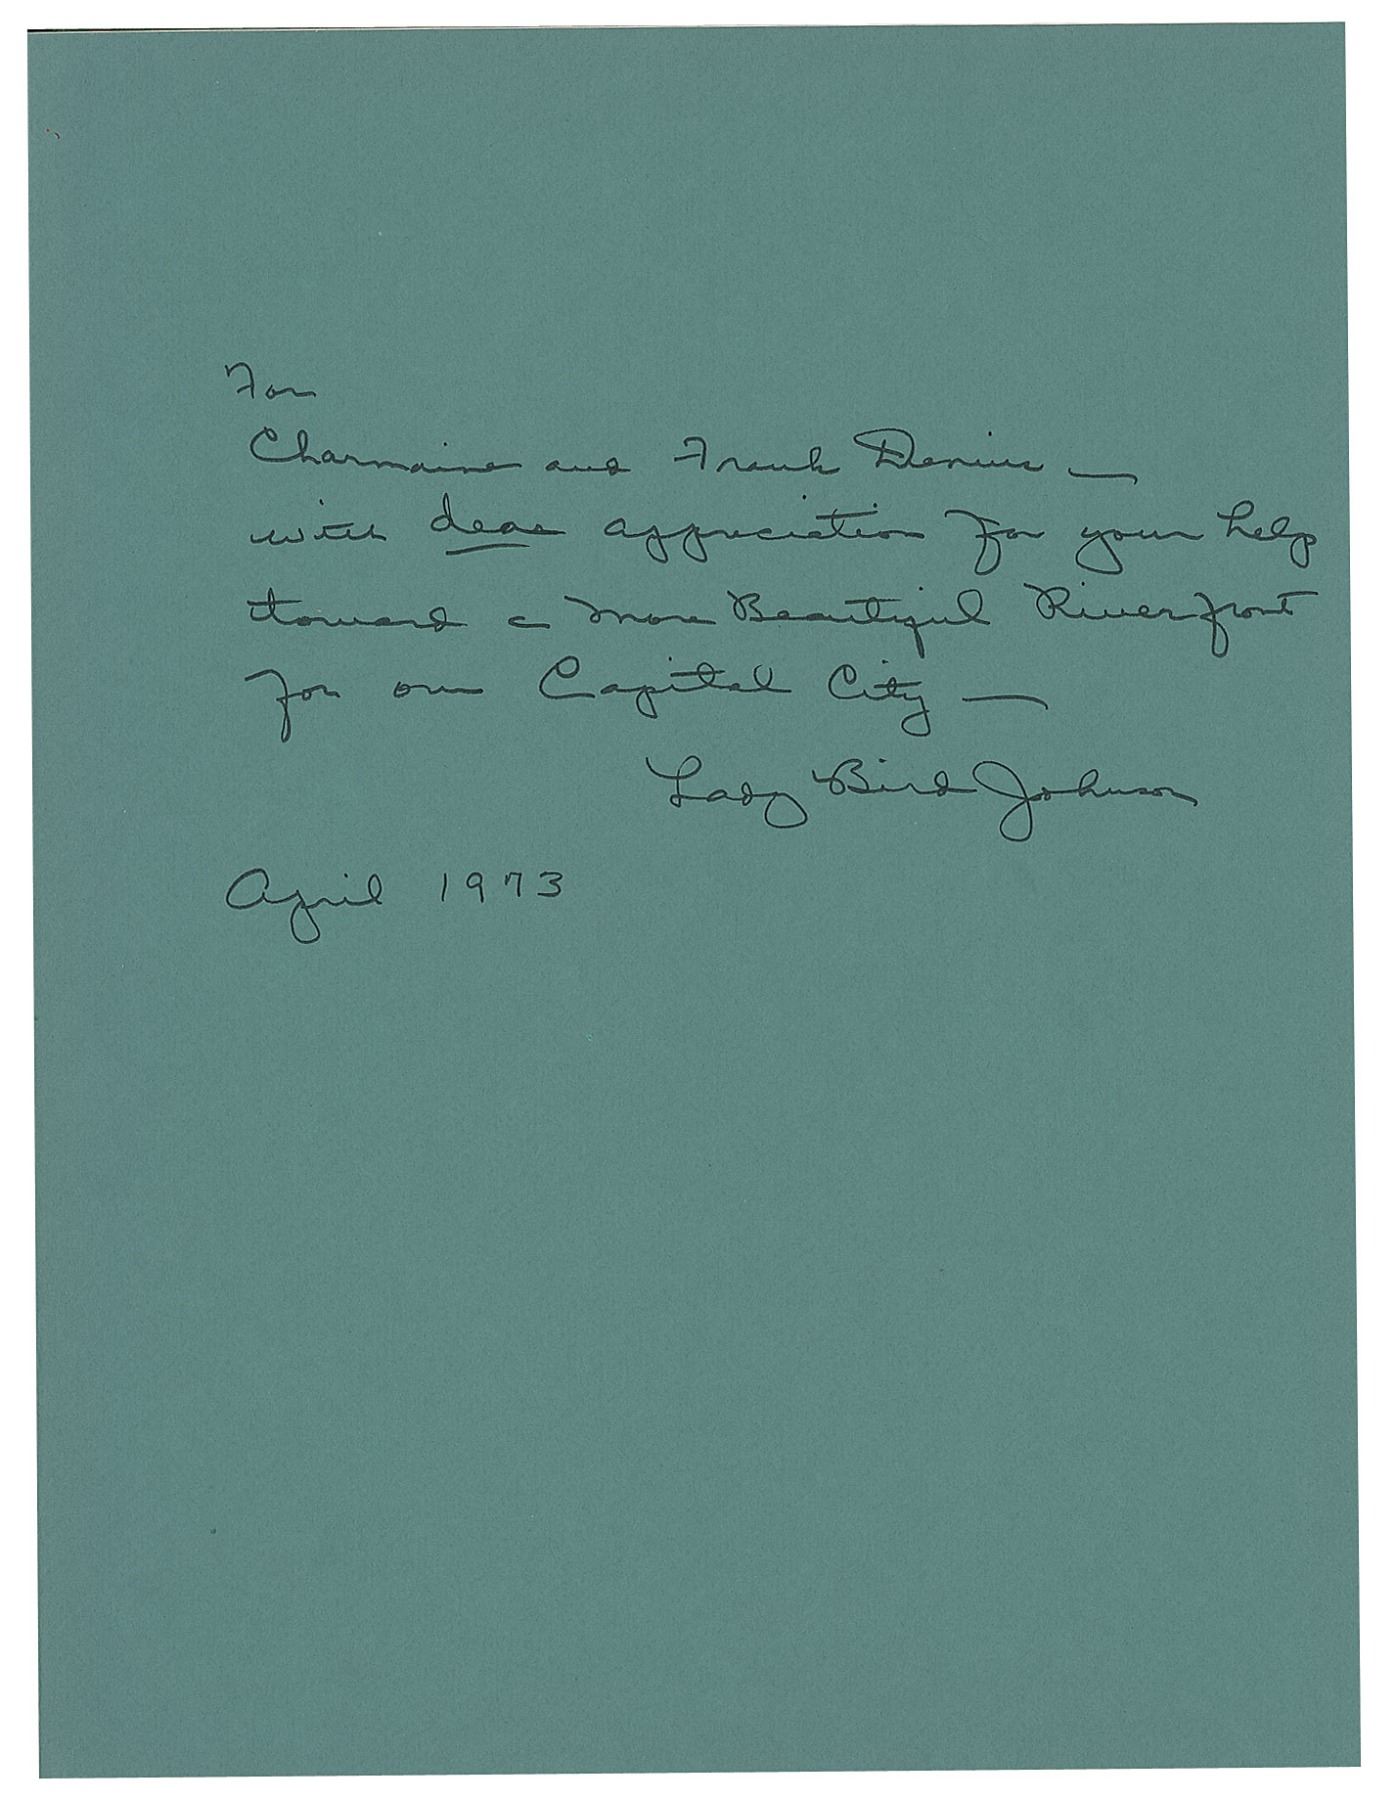 For
Charmaine and Frank Denius —
with dear appreciation for your help
toward a More Beautiful Riverfront
for our Capital City —
Lady Bird Johnson
April 1973